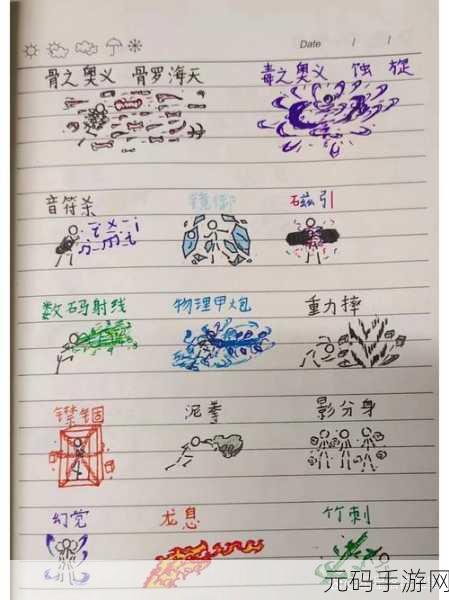 Date / /
骨之奥义 骨罗海天 毒之奥义 蚀 旋
音符杀 镜御 磁引
数码射线 物理甲炮 重力摔
禁锢 泥拳 影分身
幻觉 龙息 竹刺
元码手游网